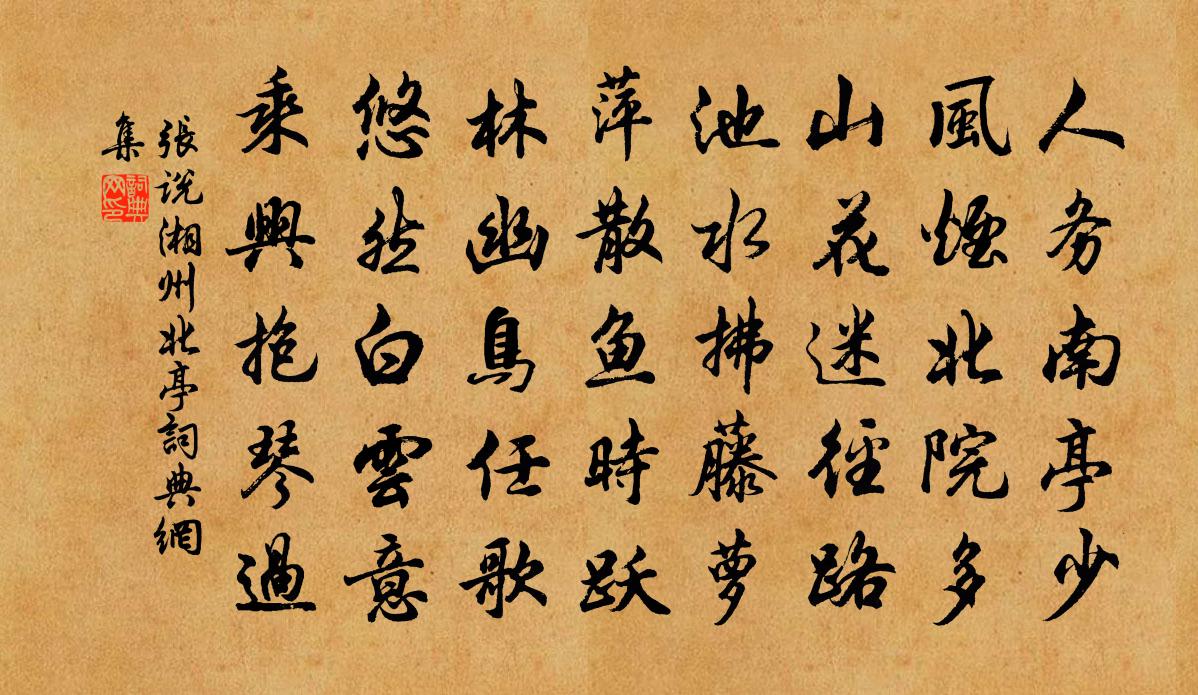 人务南亭少
風煙北院多
山花迷徑路
池水拂藤萝
萍散魚時跃
林幽鳥任歌
悠然白雲意
乘興抱琴過
張说湘州北亭詞典網
集
詞典网印